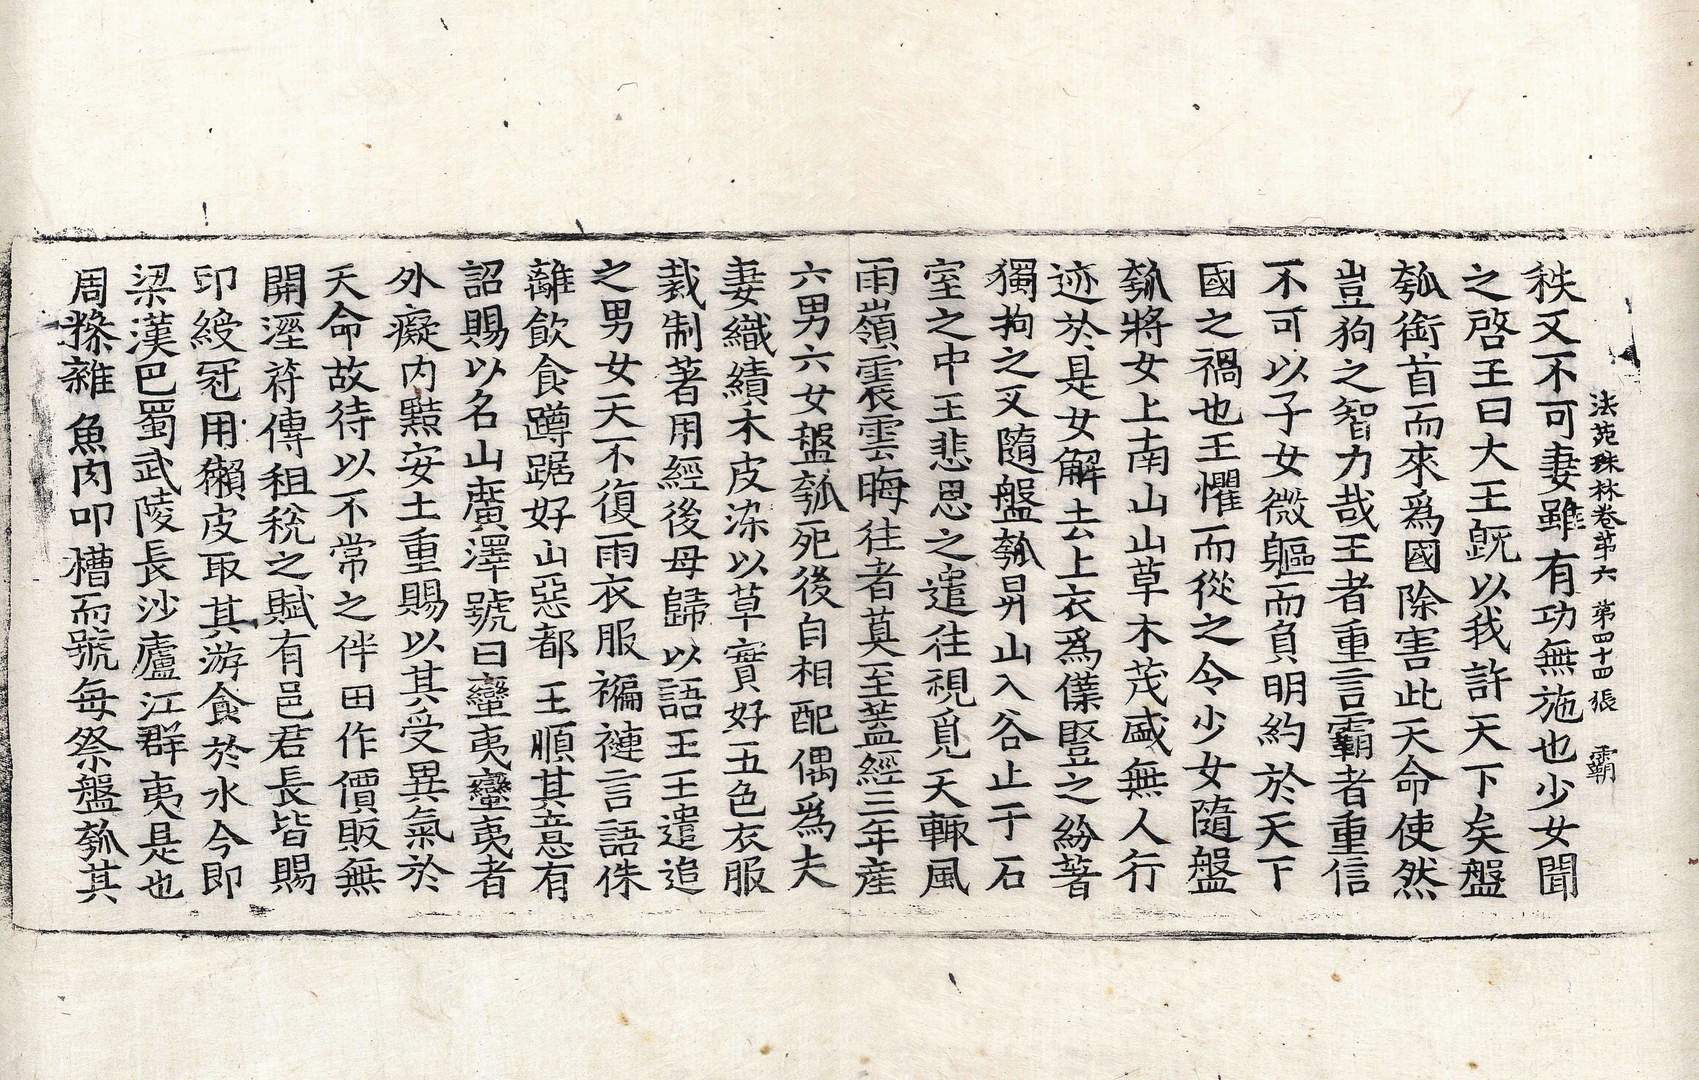 法苑珠林卷第六 第四十四張 霸
秩又不可妻雖有功無施也少女聞
之啓王曰大王旣以我許天下矣盤
瓠銜首而來爲國除害此天命使然
豈狗之智力哉王者重言霸者重信
不可以子女微軀而負明約於天下
國之禍也王懼而從之令少女隨盤
瓠將女上南山山草木茂盛無人行
迹於是女解去上衣爲僕豎之紛著
獨拘之叉隨盤瓠昇山入谷止于石
室之中王悲思之遣往視覓天輒風
雨嶺震雲晦往者莫至蓋經三年產
六男六女盤瓠死後自相配偶爲夫
妻織績木皮染以草實好五色衣服
裁制著用經後母歸以語王王遣追
之男女天不復雨衣服褊褳言語侏
離飮食蹲踞好山惡都王順其意有
詔賜以名山廣澤號曰蠻夷蠻夷者
外癡內黠安土重賜以其受異氣於
天命故待以不常之伴田作價販無
開溼符傳租稅之賦有邑君長皆賜
印綬冠用獺皮取其游食於水今即
梁漢巴蜀武陵長沙廬江群夷是也
周糝雜魚肉叩槽而號每祭盤瓠其